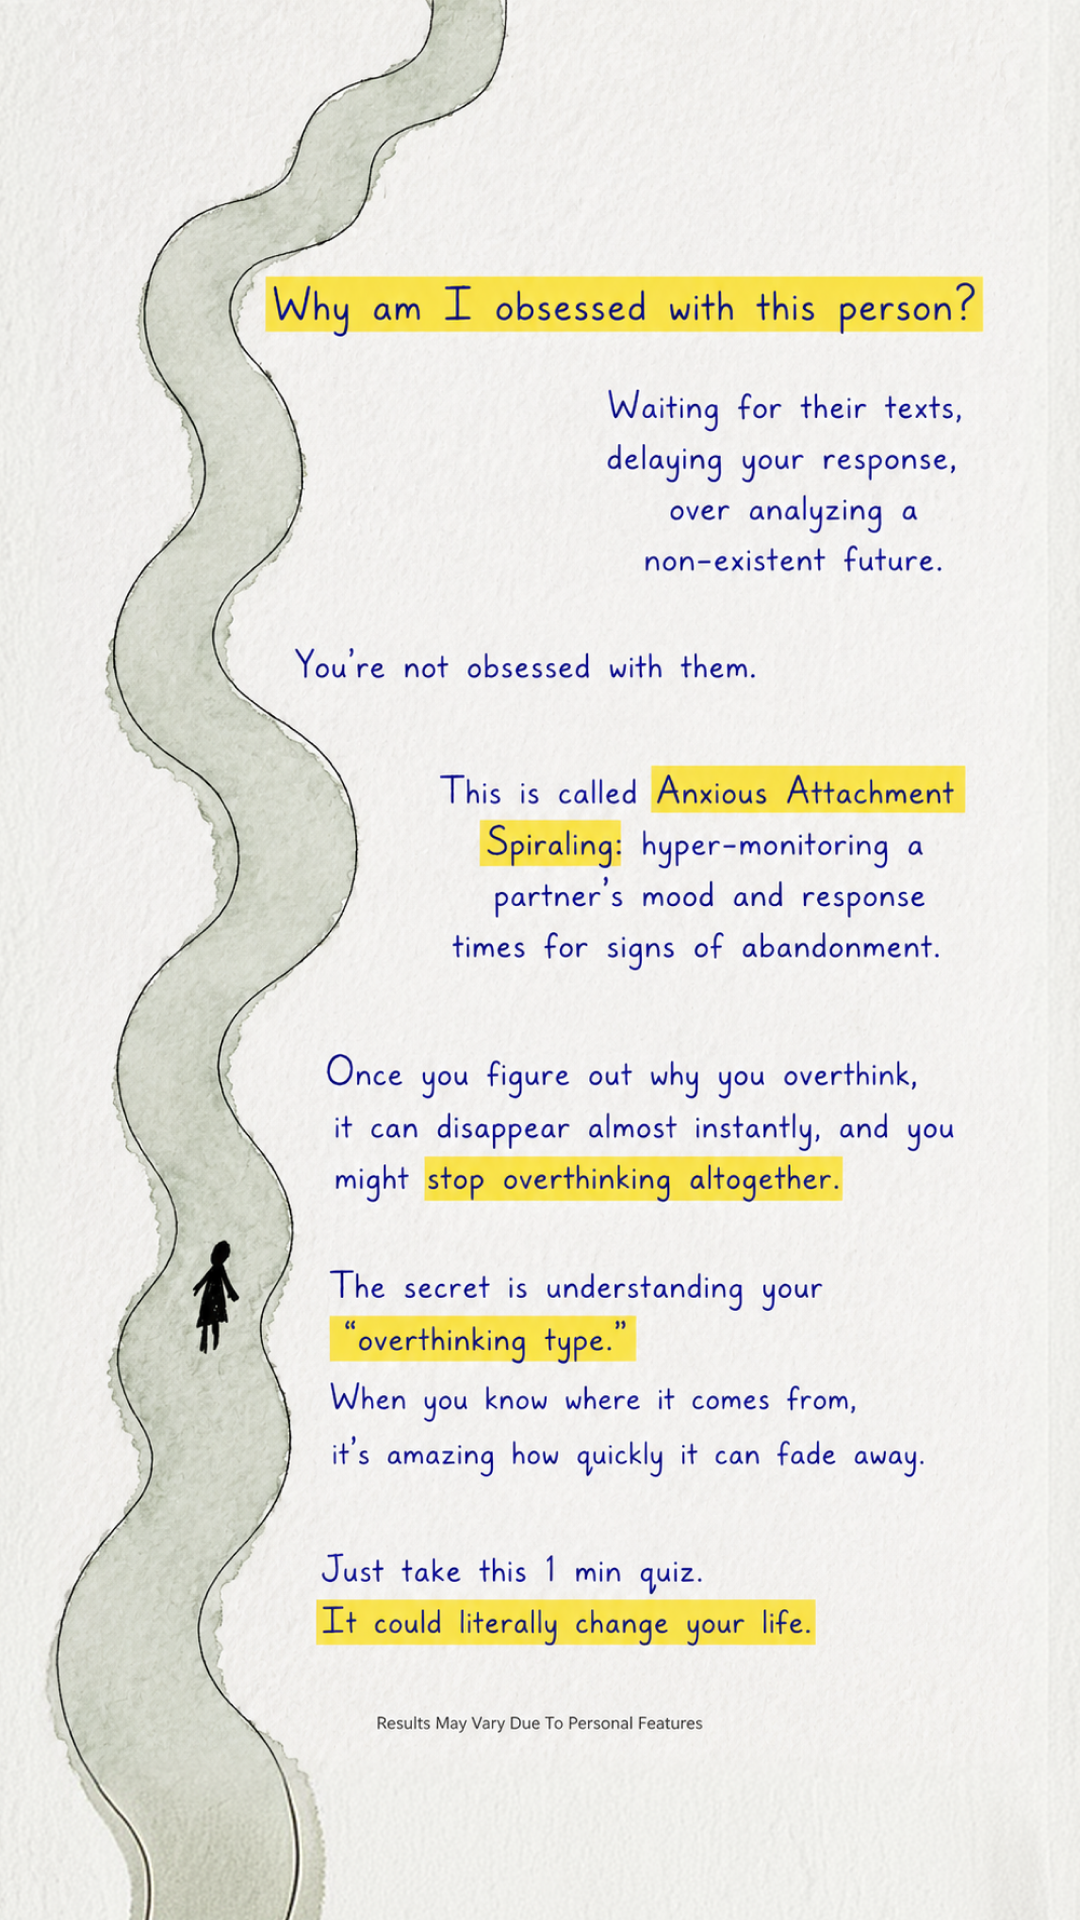 Why am I obsessed with this person?
Waiting for their texts,
delaying your response,
over analyzing a
non-existent future.
You’re not obsessed with them.
This is called Anxious Attachment
Spiraling: hyper-monitoring a
partner’s mood and response
times for signs of abandonment.
Once you figure out why you overthink,
it can disappear almost instantly, and you
might stop overthinking altogether.
The secret is understanding your
“overthinking type.”
When you know where it comes from,
it’s amazing how quickly it can fade away.
Just take this 1 min quiz.
It could literally change your life.
Results May Vary Due To Personal Features